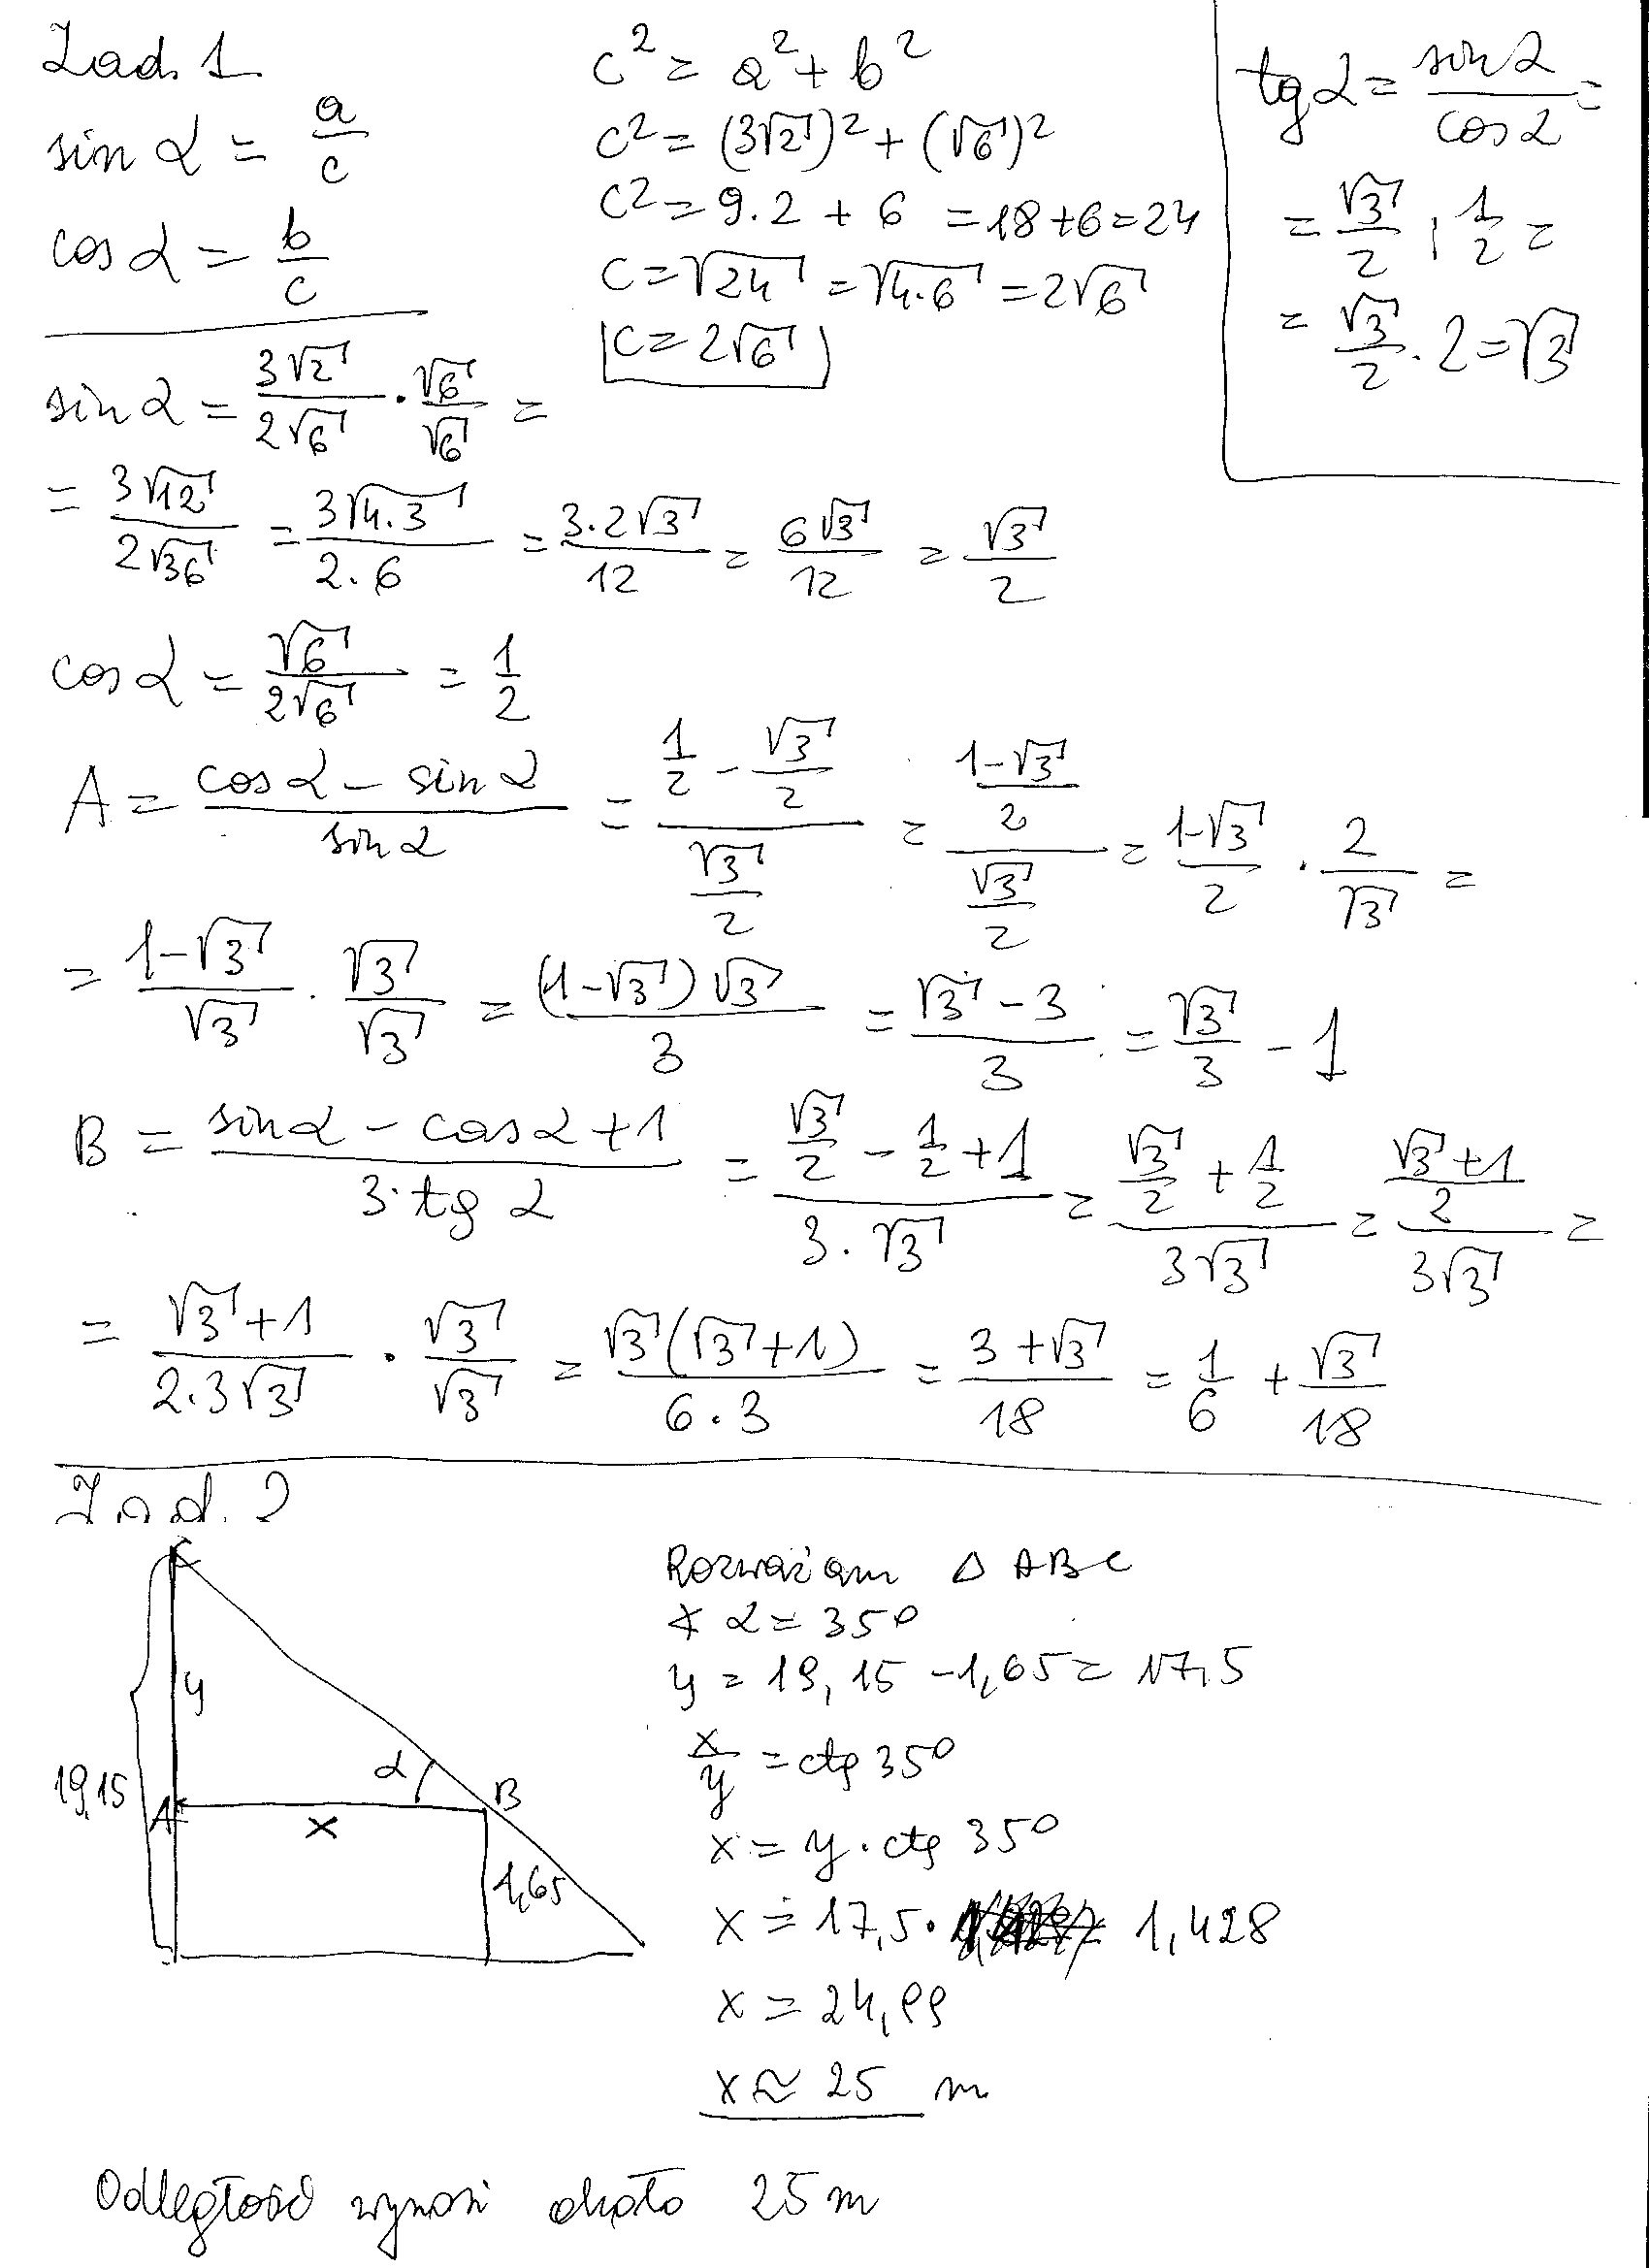 Zad. 1
sin α = a/c
cos α = b/c
c² = a² + b²
c² = (3√2)² + (√6)²
c² = 9·2 + 6 = 18+6=24
c = √24 = √4·6 = 2√6
c = 2√6
tg α = sin α / cos α =
= √3/2 : 1/2 =
= √3/2 · 2 = √3
sin α = 3√2/2√6 · √6/√6 =
= 3√12/2√36 = 3√4·3/2·6 = 3·2√3/12 = 6√3/12 = √3/2
cos α = √6/2√6 = 1/2
A = (cos α – sin α)/sin α = (1/2 – √3/2)/(√3/2) = ((1-√3)/2)/(√3/2) = (1-√3)/2 · 2/√3 =
= (1-√3)/√3 · √3/√3 = (1-√3)√3/3 = (√3 - 3)/3 = √3/3 - 1
B = (sin α – cos α + 1)/(3·tg α) = (√3/2 – 1/2 + 1)/(3·√3) = (√3/2 + 1/2)/(3√3) = ((√3+1)/2)/(3√3) =
= (√3+1)/(2·3√3) · √3/√3 = √3(√3+1)/(6·3) = (3+√3)/18 = 1/6 + √3/18
Zad. 2
C
y
19,15
A
x
α
B
1,65
Rozważam △ ABC
∢ α = 35°
y = 19,15 – 1,65 = 17,5
x/y = ctg 35°
x = y · ctg 35°
x = 17,5 · 1,428
x = 24,99
x ≈ 25 m
Odległość wynosi około 25 m